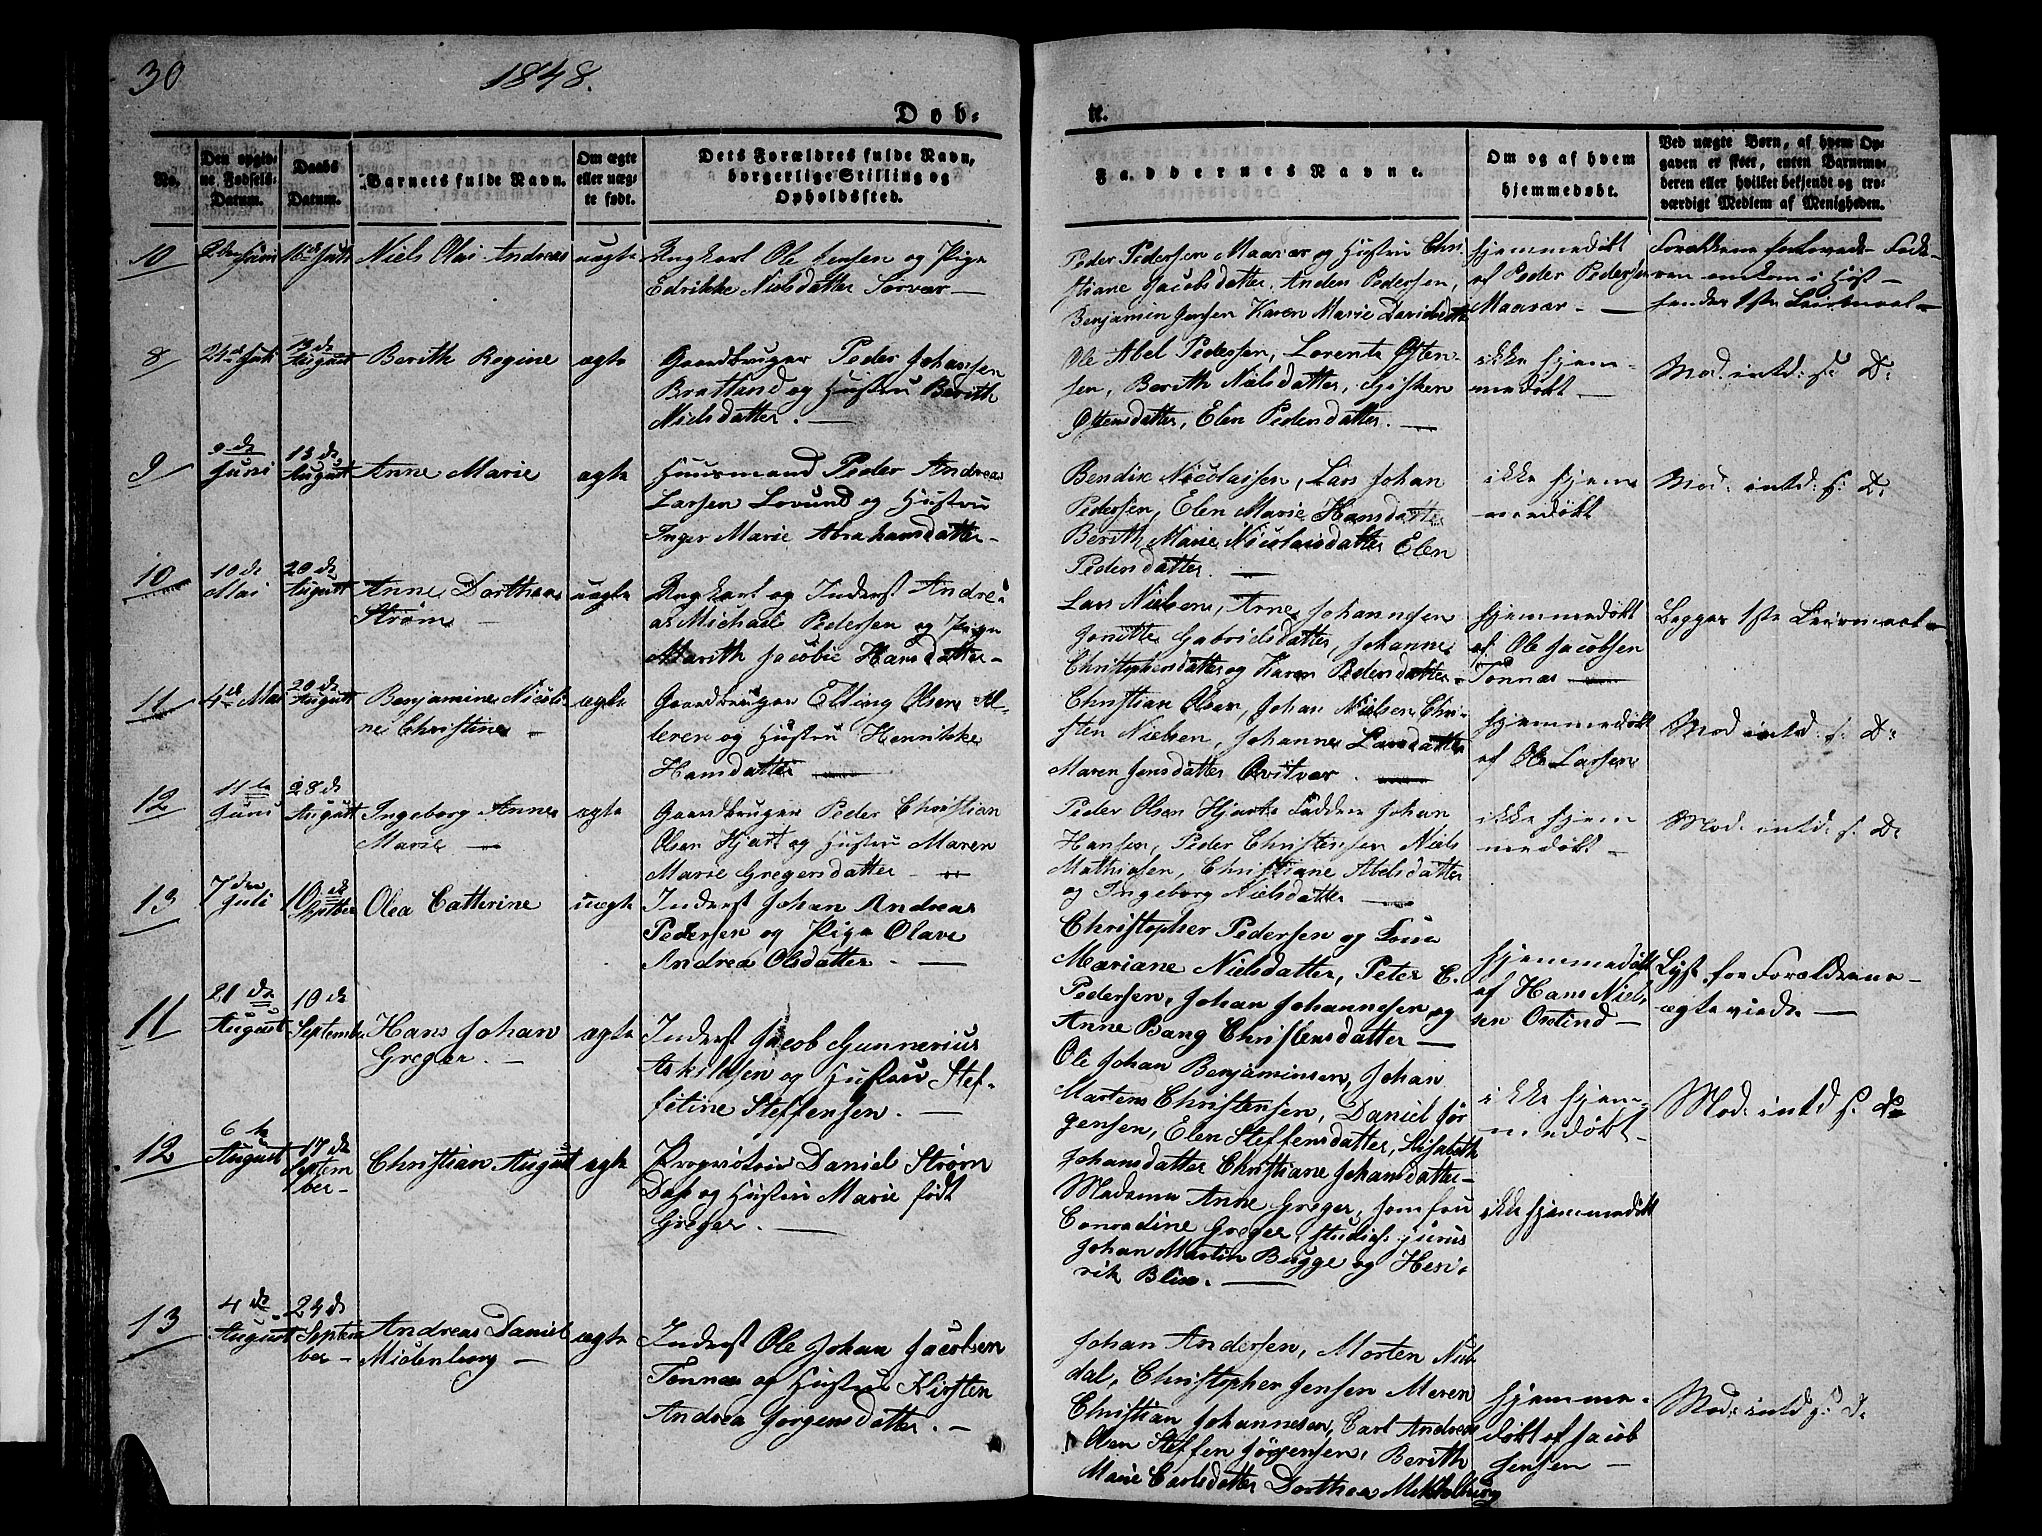 30
1848.
Døb-
n.
No.
Den opgiv-
ne Fødsels-
Datum.
Daabs
Datum.
Barnets fulde Navn.
Om ægte
eller uæg-
te født.
Dets Forældres fulde Navn,
borgerlige Stilling og
Opholdssted.
Faddernes Navne.
Om og af hvem
hjemmedøbt.
Ved uægte Børn, af hvem Op-
gaven er skeet, enten Barnemo-
deren eller hvilket bekjendt og tro-
værdigt Medlem af Menigheden.
10
Niels Olai Andreas
uægte
Ungkarl Ole Jensen og Pige
Edrikke Nielsdatter Sørvær —
Peder Pedersen Maavær og Hustru Chri
stiane Jacobsdatter, Anders Pedersen,
Benjamin Jensen Karen Marie Davidsdatter
hjemmedøbt
af Peder Pedersen
Maavær —
8
24de Juli
13de
August
Berith Regine
ægte
Gaardbruger Peder Johansen
Bratland og Hustru Berith
Nielsdatter. —
Ole Abel Pedersen, Lorents Osten-
sen, Berith Nielsdatter,
Ostensdatter, Elen Pedersdatter. —
ikke hjem-
medøbt —
Mod. intd. f. D:
9
9de
Juni
13de
August
Anne Marie
ægte
Huusmand Peder Andreas
Larsen Lovund og Hustru
Inger Marie Abrahamsdatter —
Bendix Nicolaisen, Lars Johan
Pedersen, Elen Marie Hansdatter
Berith Marie Nicolaisdatter Elen
Pedersdatter. —
ikke hjem
medøbt
Mod. intd. f. D:
10
10de
Mai
20de
August
Anne Dorthea
Strøm —
uægte
Ungkarl og Inderst Andre-
as Michael Pedersen og Pige
Marith Jacobie Hansdatter —
Lars Nielsen, Arne Johannesen
Jonette Gabrielsdatter, Johanne
Christophersdatter og Karen Pedersdatter —
hjemmedøbt
af Ole Jacobsen
Tonnæs —
Begges 1ste Leiermaal —
11
4de Mai
20de
August
Benjamine Nicoli-
ne Christine —
ægte
Gaardbruger Elling Olsen Al-
deren og Hustru Henrikke
Hansdatter —
Christian Olsen, Johan Nielsen, Chri-
sten Nielsen, Johanne Larsdatter
Maren Jensdatter Qvitvær. —
hjemmedøbt
af Ole Larsen
Mod. intd. f. D:
12
11te
Juni
28de
August
Ingeborg Anne
Marie —
ægte
Gaardbruger Peder Christian
Olsen Hjart og Hustru Maren
Marie Gregersdatter —
Peder Olsen Hjarts Fadder Johan
Hansen, Peder Christensen Niels
Mathiasen, Christiane Abelsdatter
og Ingeborg Nielsdatter —
ikke hjem
medøbt —
Mod. intd. f. D:
13
7den
Juli
10de
Septbr
Olea Cathrine
uægte
Inderst Johan Andreas
Pedersen og Pige Olave
Andrea Olsdatter. —
Christopher Pedersen og Kone
Mariane Nielsdatter, Peter C.
Pedersen, Johan Johannesen og
Anne Bang Christensdatter —
hjemmedøbt
af Hans Niel-
sen —
Lyst for Forældrene —
ægteviede —
11
21de
August
10de
September
Hans Johan
Greger. —
ægte
Inderst Jacob Gunnerius
Askildsen og Hustru Stef-
fetine Steffensen. —
Ole Johan Benjaminsen, Johan
Martens Christensen, Daniel Jør
gensen, Elen Steffensdatter, Elisabeth
Johansdatter Christiane Johansdatter —
ikke hjem-
medøbt —
Mod. intd. f. D:
12
6te
August
17de
Septem
ber —
Christian August
ægte
Proprietair Daniel Strøm
Dass og Hustru Marie født
Greger. —
Madame Anne Greger, Jomfru
Conradine Greger, studios: juris
Johan Martin Bugge og Hen-
rik Blix. —
ikke hjemmedøbt
13
4de
August
24de
Septem
ber —
Andreas Daniel
Midenborg —
ægte
Inderst Ole Johan Jacobsen
Tonnæs og Hustru Kirsten
Andrea Jørgensdatter. —
Johan Andersen, Morten Nub-
dal, Christopher Jensen Meren
Christian Johannesen, Carl Andreas
Olsen Steffen Jørgensen, Berith
Marie Carlsdatter Dorthea Meklenborg
hjemme-
døbt af Jacob
Jensen —
Mod. intd. f. D: